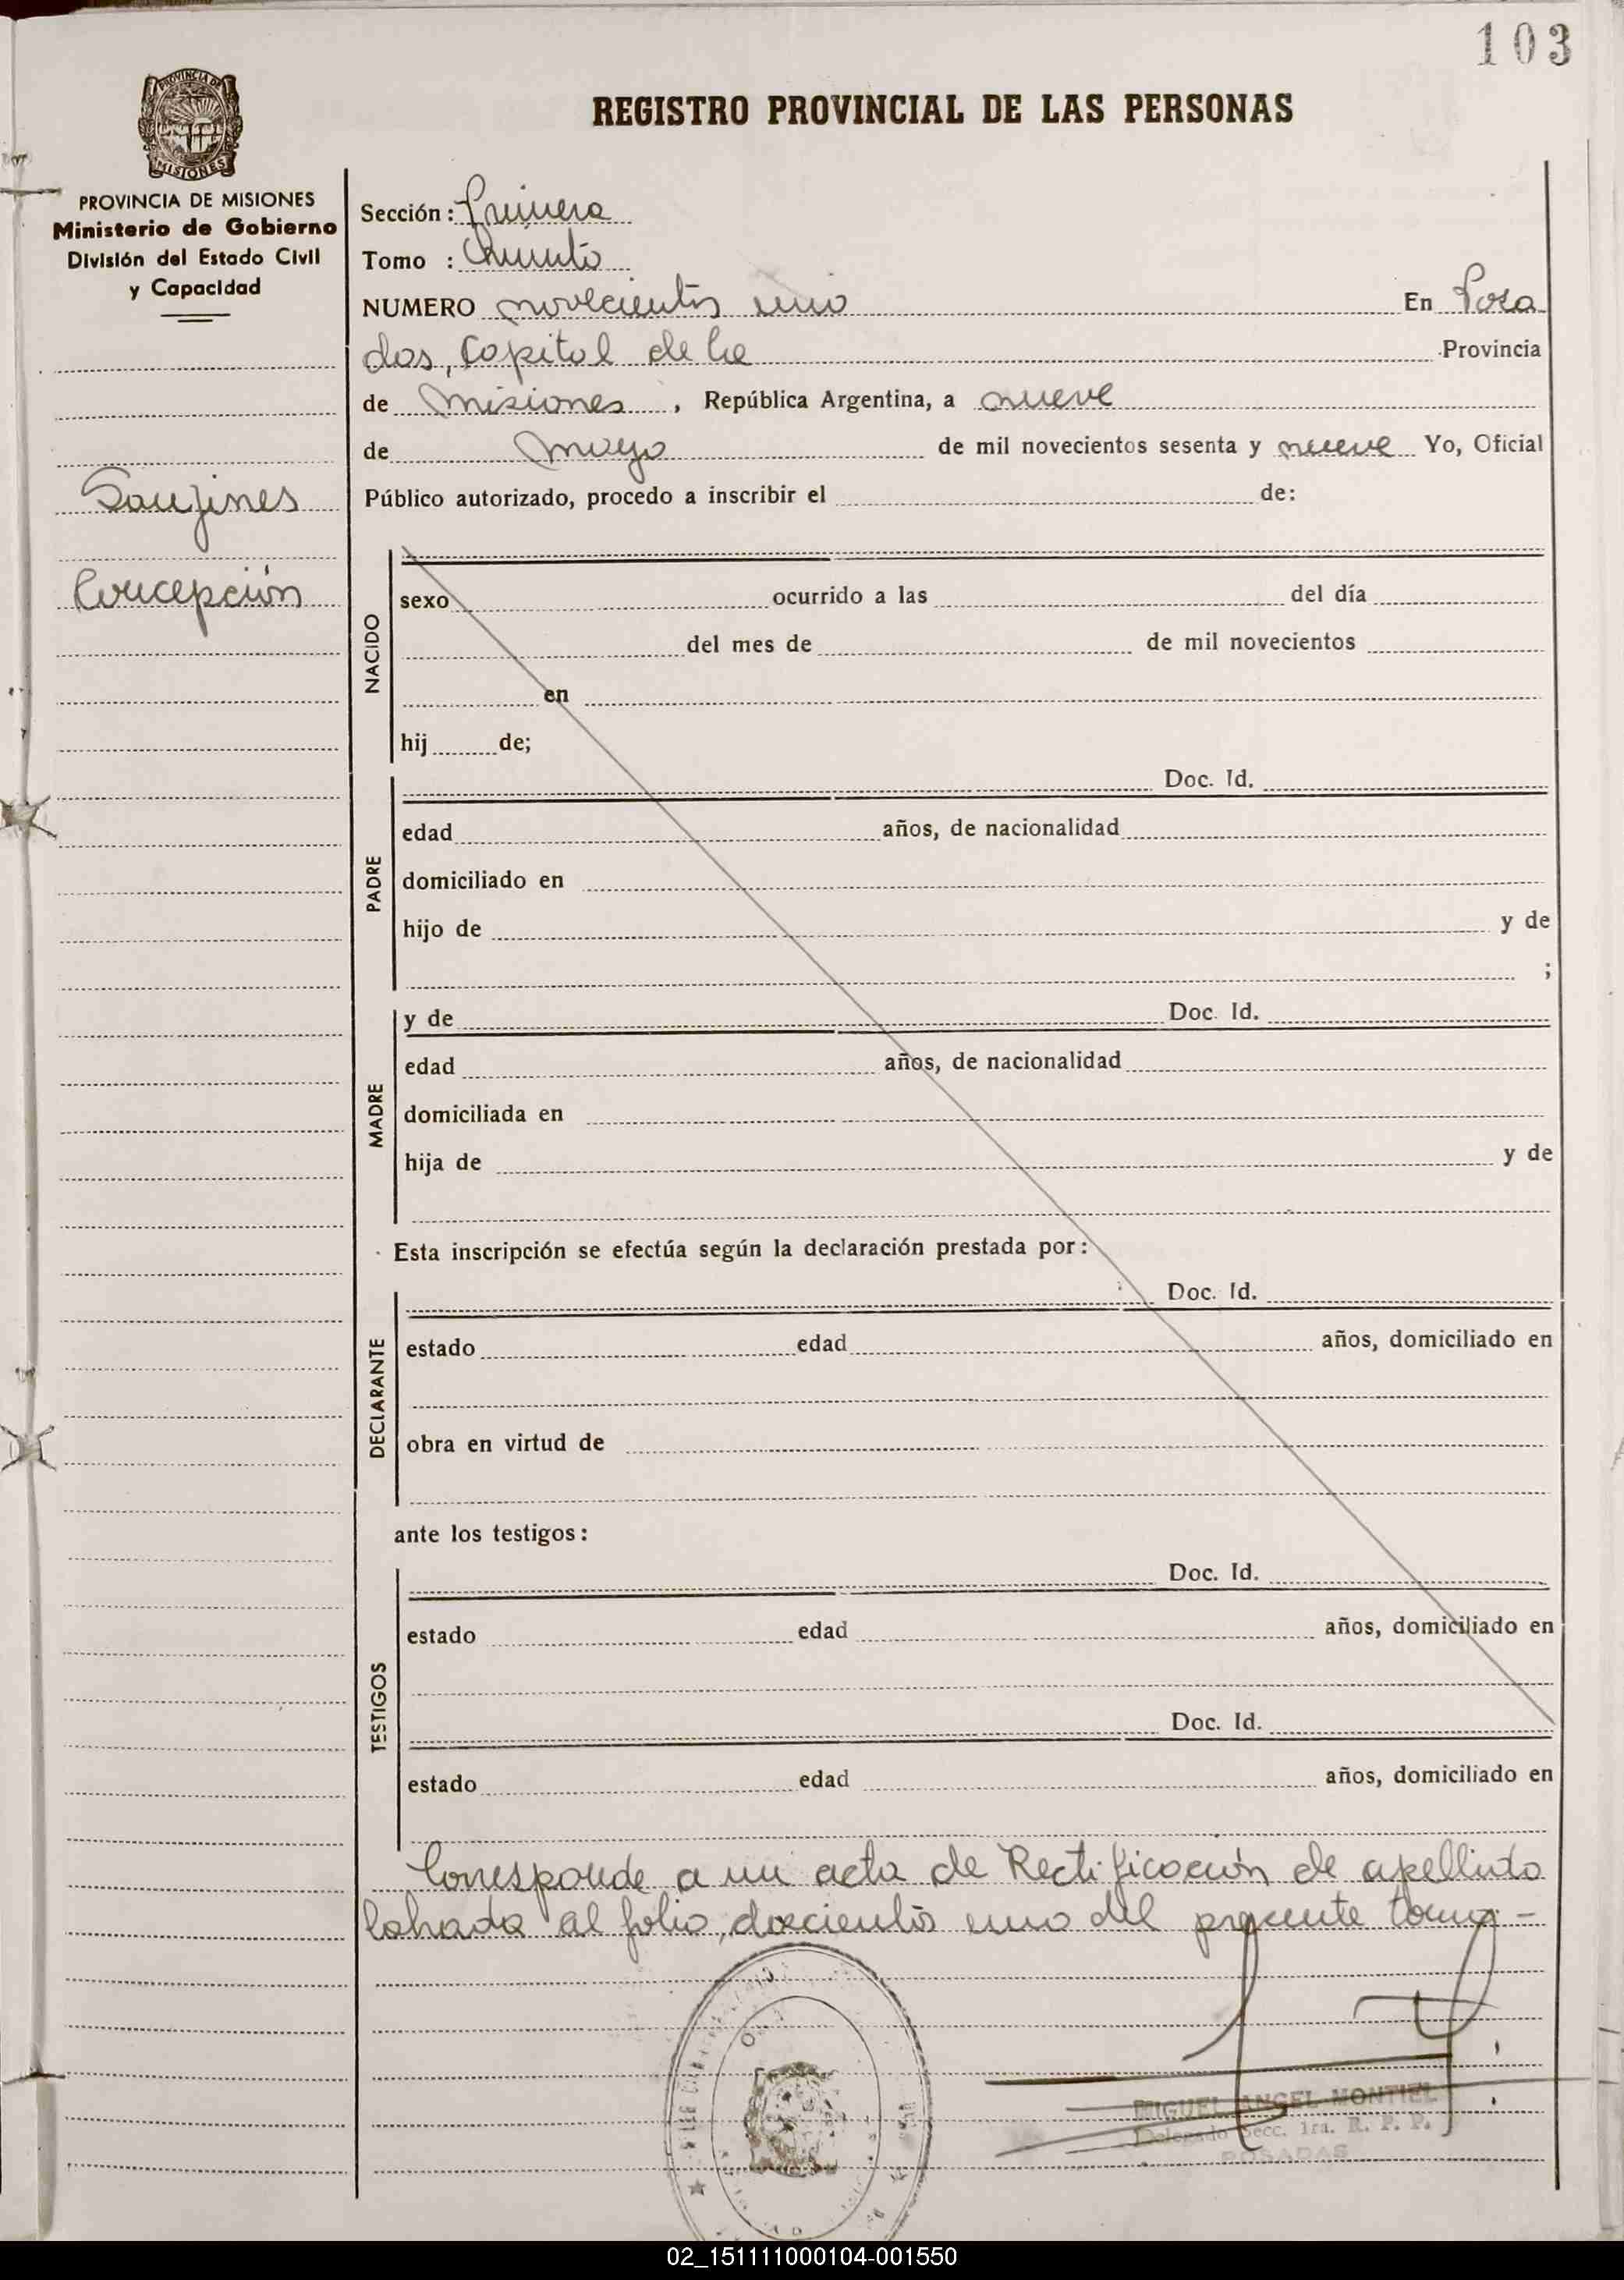 103
PROVINCIA DE MISIONES
REGISTRO PROVINCIAL DE LAS PERSONAS
PROVINCIA DE MISIONES
Ministerio de Gobierno
División del Estado Civil
y Capacidad
Sección: Primera
Tomo : Quinto
NUMERO novecientos uno En Posa
dos, Capital de la Provincia
de Misiones, República Argentina, a nueve
de mayo de mil novecientos sesenta y nueve Yo, Oficial
Público autorizado, procedo a inscribir el de:
Concepción
NACIDO
sexo ocurrido a las del día
del mes de de mil novecientos
en
hij de;
PADRE
Doc. Id.
edad años, de nacionalidad
domiciliado en
hijo de y de
;
MADRE
y de Doc. Id.
edad años, de nacionalidad
domiciliada en
hija de y de
Esta inscripción se efectúa según la declaración prestada por:
DECLARANTE
Doc. Id.
estado edad años, domiciliado en
obra en virtud de
ante los testigos:
TESTIGOS
Doc. Id.
estado edad años, domiciliado en
Doc. Id.
estado edad años, domiciliado en
Corresponde a un acta de Rectificación de apellido
labrada al folio, doscientos uno del presente tomo -
MIGUEL ANGEL MONTIEL
Delegado Secc. 1ra. R. P. P.
POSADAS
02_151111000104-001550